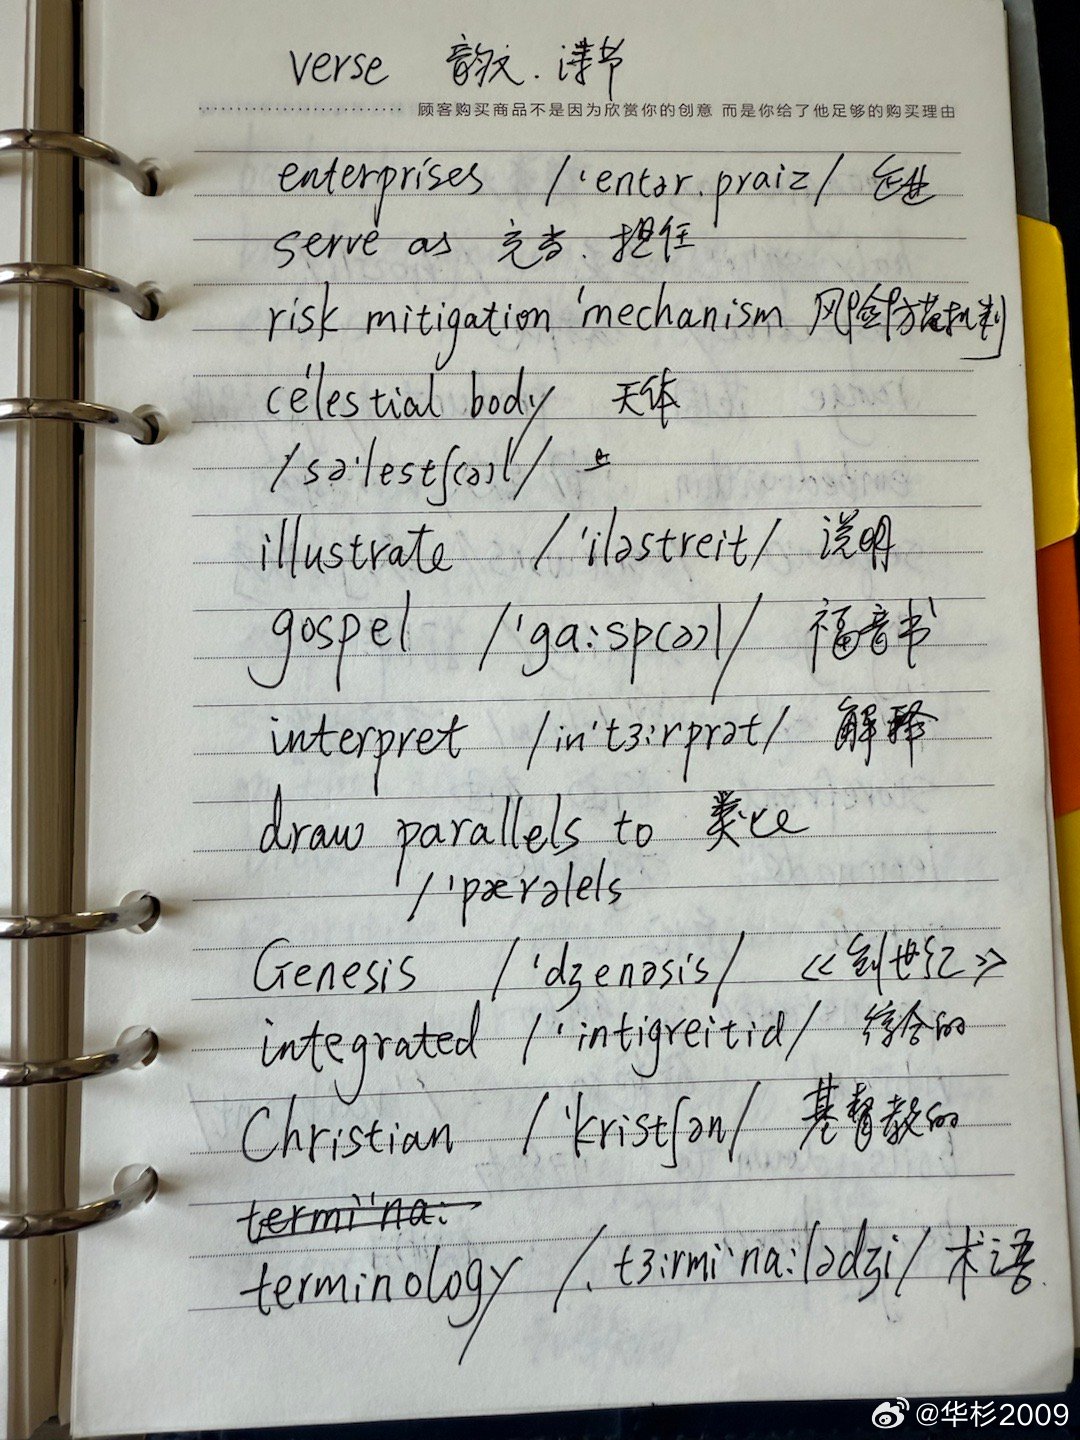 verse 韵文.诗节
顾客购买商品不是因为欣赏你的创意 而是你给了他足够的购买理由
enterprises /'entər.praiz/ 企业
serve as 充当.担任
risk mitigation 'mechanism 风险防范机制
ce'lestial body 天体
/sə'lestʃ(ə)l/
illustrate /'iləstreit/ 说明
gospel /'ga:sp(ə)l/ 福音书
interpret /in'tɜ:rprət/ 解释
draw parallels to 类比
/'pærəlels
Genesis /'dʒenəsis/ 《创世纪》
integrated /'intigreitid/ 综合的
Christian /'kristʃən/ 基督教的
termi'na:
terminology /.tɜ:rmi'na:lədʒi/ 术语
@华杉2009